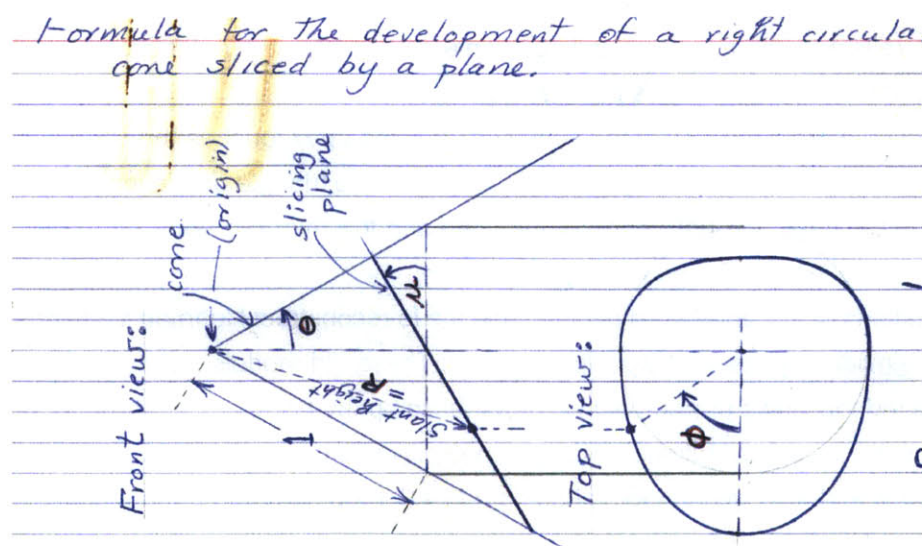 Formula for the development of a right circula
cone sliced by a plane.
Front view:
cone
(origin)
slicing
plane
θ
μ
1
Slant Height
= R
Top view:
ϕ